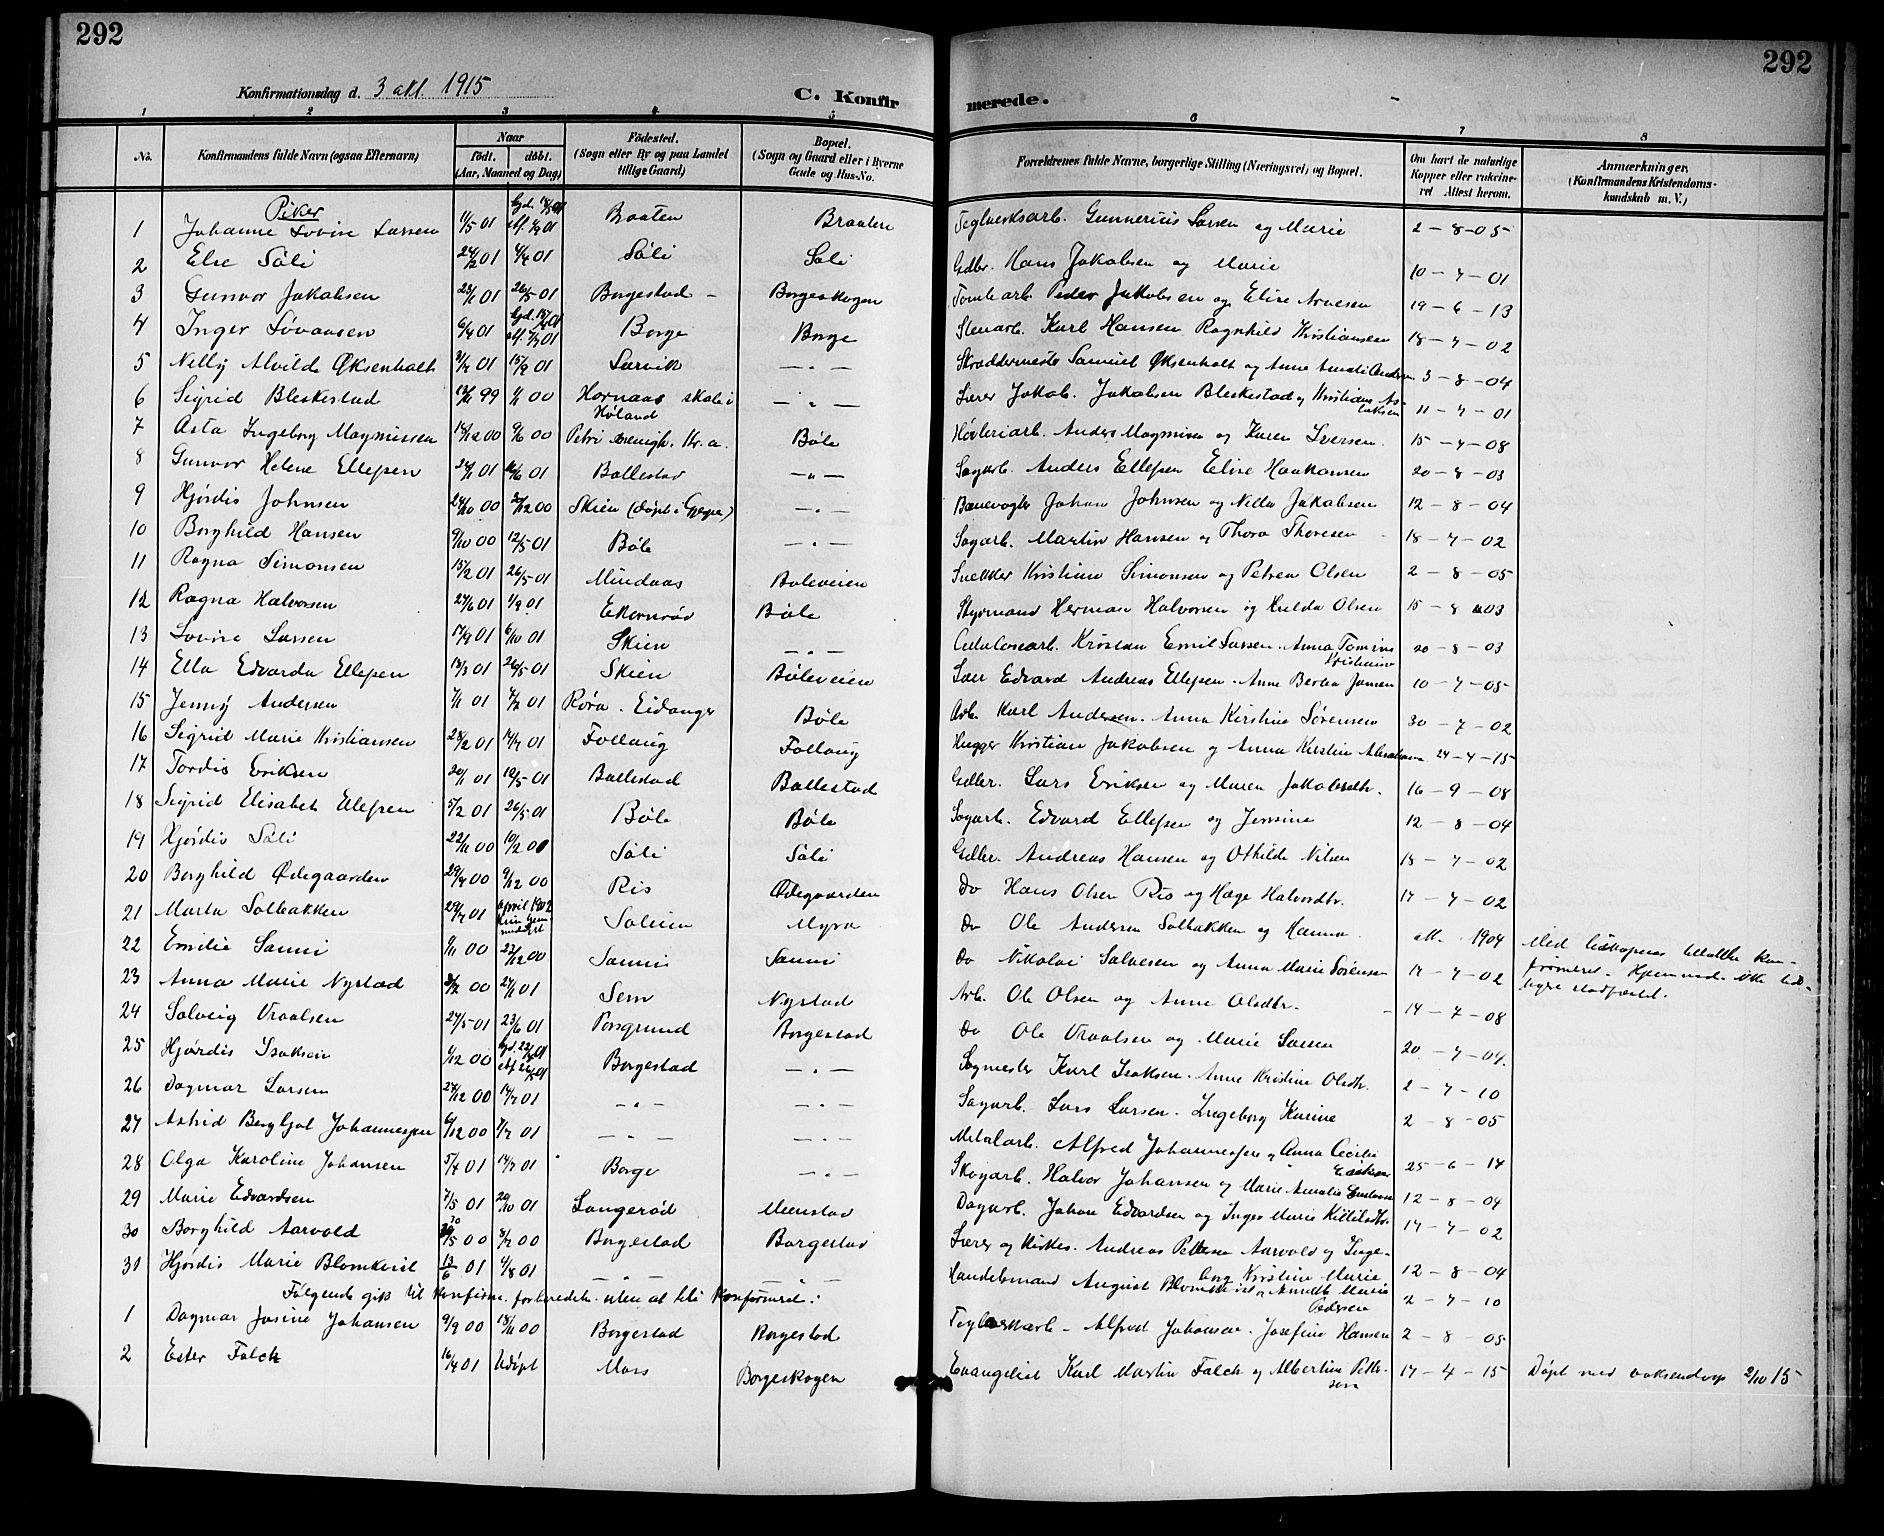 292
292
Konfirmationsdag d. 3 okt. 1915
C. Konfirmerede.
1 2 3 4 5 6 7 8
No. Konfirmandens fulde Navn (ogsaa Efternavn) Naar født. døbt. (Aar, Maaned og Dag) Fødested. (Sogn eller By og paa Landet tillige Gaard) Bopæl. (Sogn og Gaard eller i Byerne Gade og Hus-No. Forældrenes fulde Navne, borgerlige Stilling (Næringsvei) og Bopæl. Om havt de naturlige Kopper eller vaksineret Attest herom. Anmærkninger. (Konfirmandens Kristendomskundskab m. V.)
Piker
1 Johanne Lovise Larsen 11/5 01 Braaten Braaten Teglverksarb. Gunnerius Larsen og Marie 2-8-05
2 Else Sóli 24/2 01 4/4 01 Sóli Sóli Gdbr. Hans Jakobsen og Marie 10-7-01
3 Gunvor Jakobsen 23/1 01 26/5-01 Borgestad Borgeskogen Tomtearb. Peder Jakobsen og Elise Arnesen 19-6-13
4 Inger Løvaasen 6/4 01 Borge Borge Stenarb. Karl Hansen Ragnhild Kristiansen 18-7-02
5 Nelly Alvilde Øksenholt 15/9 01 Larvik —〃— Skræddermester Samuel Øksenholt og Anne Amalie Andersen 3-8-04
6 Sigrid Bleskestad 13/11 99 1/1 00 Hornaas skole i Høland —〃— Lærer Jakob Jakobsen Bleskestad og Kristiane Aslaksen 11-7-01
7 Asta Ingeborg Magnussen 18/12 00 9/6 00 Petri menigh. Kr.a. Bøle Høvleriarb. Anders Magnusen og Karen Iversen 15-7-08
8 Gunvor Helene Ellefsen 24/1 01 16/6 01 Ballestad —〃— Sagarb. Anders Ellefsen Elise Haakonsen 20-8-03
9 Hjørdis Johnsen 24/10 00 2/12 00 Skien (døpt i Gjerpen) —〃— Banevogter Johan Johnsen og Nella Jakobsen 12-8-04
10 Borghild Hansen 9/10 00 12/5-01 Bøle —〃— Sagarb. Martin Hansen og Thora Thoresen 18-7-02
11 Ragna Simonsen 15/2 01 26/5-01 Mindaas Bøleveien Snekker Kristian Simonsen og Petrea Olsen 2-8-05
12 Ragna Halvorsen 24/6 01 1/9 01 Ekornrød Bøle Styrmand Herman Halvorsen og Hulda Olsen 15-8-03
13 Lovise Larsen 17/9 01 6/10 01 Skien —〃— Cellulosearb. Kristian Emil Larsen. Anna Tomine Kristiansen 20-8-03
14 Ella Edvarda Ellefsen 13/3 01 26/5-01 Skien Bøleveien Edvard Andreas Ellefsen. Anne Bertea Jansen 10-7-05
15 Jenny Andersen 7/1 01 4/2 01 Røra. Eidanger Bøle Arb. Karl Andersen. Anna Kirstine Sørensen 30-7-02
16 Sigrid Marie Kristiansen 28/2 01 14/7 01 Follaug Follaug Hugger Kristian Jakobsen og Anna Kirstine 24-4-15
17 Tordis Eriksen 20/1 01 12/5-01 Ballestad Ballestad Gdbr. Lars Eriksen og Maren Jakobsdtr. 16-9-08
18 Sigrid Elisabet Ellefsen 5/2 01 26/5-01 Bøle Bøle Sagarb. Edvard Ellefsen og Jensine 12-8-04
19 Hjørdis Sóli 22/11 00 10/2 00 Sóli Sóli Gdbr. Andreas Hansen og Othilde Nilsen 18-7-02
20 Borghild Ødegaarden 29/7 00 9/12 00 Ris Ødegaarden Do Hans Olsen Ris og Hæge Halvordtr. 17-7-02
21 Marta Solbakken 29/7 01 april 1902 Myra Do Ole Andersen Solbakken og Hanna att. 1904 Med biskopens tilladelse konfirmeret. Hjemmed. ikke
22 Emilie Sanni 1/11 00 23/12 00 Sanni Sanni Do Nikolai Salvesen og Anna Marie Sörensen 17-7-02
23 Anna Marie Nystad 27/1 01 Sem Nystad Arb. Ole Olsen og Anne Olsdtr. 14-7-08
24 Solveig Vraalsen 27/5-01 23/6 01 Porsgrund Borgestad Do Ole Vraalsen og Marie Larsen 20-7-04.
25 Hjørdis Isaksen 1/12 00 Borgestad —〃— Sagmester Karl Isaksen. Anne Kristine Olsdtr. 2-7-10
26 Dagmar Larsen 24/12 00 14/7 01 —〃— —〃— Sagarb. Lars Larsen. Ingeborg Karine 2-8-05
27 Astrid Bergljot Johannessen 6/12 00 7/7 01 —〃— —〃— Metalarb. Alfred Johannessen og Anna Cecilie 25-6-14
28 Olga Karoline Johansen 5/4 01 14/7 01 Borge —〃— Skogarb. Halvor Johansen og Marie Amalie 12-8-04
29 Marie Edvardsen 7/5 01 20/10 01 Langerød Menstad Dagarb. Johan Edvardsen og Inger Marie Kittilsdtr. 17-7-02
30 Borghild Aarvold 8/7 00 Borgestad Borgestad Lærer og kirkes. Andreas Petersen Aarvold og Ingeborg Kristine Marie 12-8-04
31 Hjørdis Marie Blomkvist 13/6 01 4/8 01 —〃— —〃— Handelsmand August Blomkvist og Annette Marie Pedersen 2-7-10
Følgende gik til konfirm. forberedelse uten at bli konfirmert:
1 Dagmar Josine Johansen 9/9 00 18/11 00 Borgestad Borgestad Teglverksarb. Alfred Johansen. Josefine Hansen 2-8-05
2 Ester Falch 16/4 01 Udøpt Moss Borgeskogen Evangelist Karl Martin Falch og Albertine Pettersen 17-4-15 Døpt med voksendaap 2/10 15